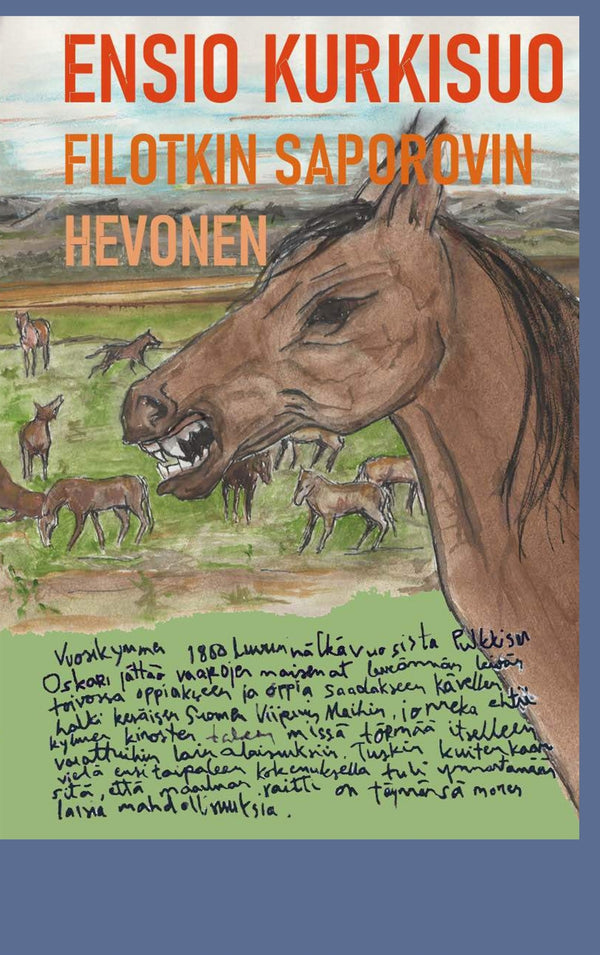 ENSIO KURKISUO
FILOTKIN SAPOROVIN
HEVONEN
Vuosikymmen 1860 luvun nälkävuosista Pulkkisen
Oskari jättää vaarojen maisemat leveämmän leivän
toivossa oppiakseen ja oppia saadakseen kävellen
halki keväisen Suomen Viipurin Maihin, jonneka ehtii
kylmen kinosten missä törmää itselleen
vaatteihin lainalaisuuksiin. Tuskin kuitenkaan
vielä ensi taipaleen kokemuksella tuli ymmärtämään
sitä, että maailman raitti on täynnänsä monen
laisia mahdollisuuksia.